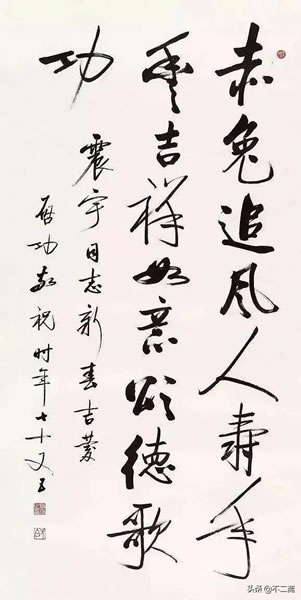 赤兔追风人寿年
丰吉祥如意颂德歌
功
震宇同志新春吉慶
啟功敬祝时年七十又五
头条@不二斋